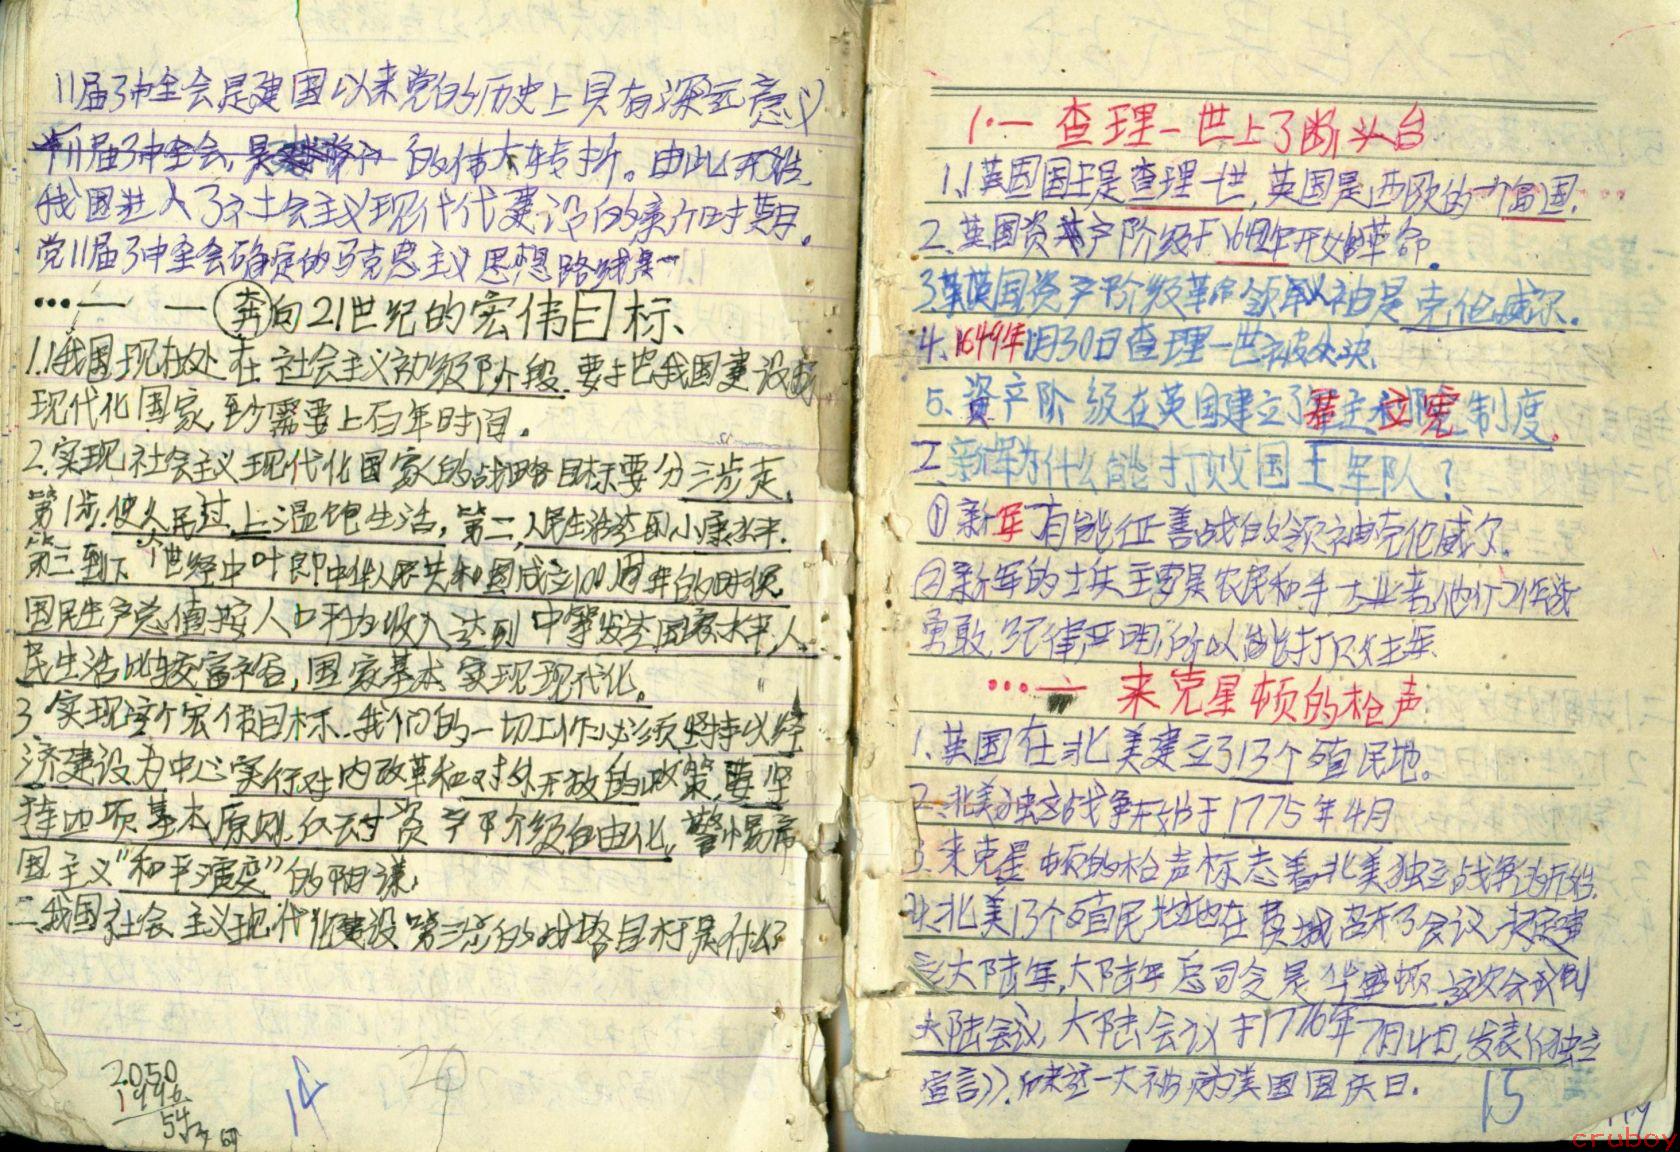 11届3中全会是建国以来党的历史上具有深远意义
11届3中全会,是 的伟大转折。由此开始
我国进入了社会主义现代代建设的新介时期.
党11届3中全会确定的马克思主义思想路线是…
…一 一奔向21世纪的宏伟目标
1.我国现在处在社会主义初级阶段.要把我国建设成
现代化国家,至少需要上百年时间.
2.实现社会主义现代化国家的战略目标要分三步走,
第1步,使人民过上温饱生活,第二,人民生活达到小康水平.
第三到下个世纪中叶即中华人民共和国成立100周年的时候
国民生产总值按人口平均收入达到中等发达国家水平,人
民生活比较富裕,国家基本实现现代化.
3.实现这个宏伟目标.我们的一切工作必须坚持以经
济建设为中心实行对内改革和对外开放的政策,要坚
持四项基本原则.反对资产阶级自由化,警惕帝
国主义"和平演变"的阴谋.
二.我国社会主义现代化建设第三步的战略目标是什么
2050
1996
54
14
20
1.一 查理一世上了断头台
1.1英国国王是查理一世,英国是西欧的一个岛国.
2.英国资产阶级于1640年开始革命.
3.英国资产阶级革命领袖是克伦威尔.
4.1649年1月30日查理一世被处决
5.资产阶级在英国建立了君主立宪制度.
新军为什么能打败国王军队?
①新军有能征善战的领袖克伦威尔.
②新军的士兵主要是农民和手工业者,他们作战
勇敢,纪律严明,所以能打败王军.
…一 来克星顿的枪声
1.英国在北美建立了13个殖民地。
2.北美独立战争开始于1775年4月
3.来克星顿的枪声标志着北美独立战争的开始.
4.北美13个殖民地在费城召开了会议,决定建
立大陆军,大陆军总司令是华盛顿.这次会议叫
大陆会议,大陆会议于1776年7月4日,发表《独立
宣言》.后来这一天被定为美国国庆日.
15
cruboy